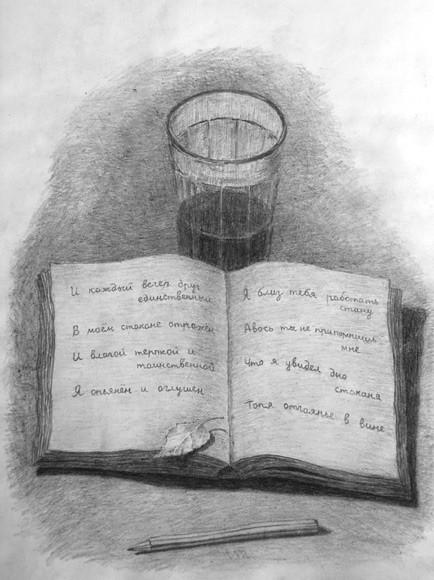 И каждый вечер друг
единственный
В моём стакане отражён
И влагой терпкой и
таинственной
Я опьянен и оглушен
Я близ тебя работать
стану
Авось ты не припомнишь
мне
Что я увидел дно
стакана
Топя отчаянье в вине